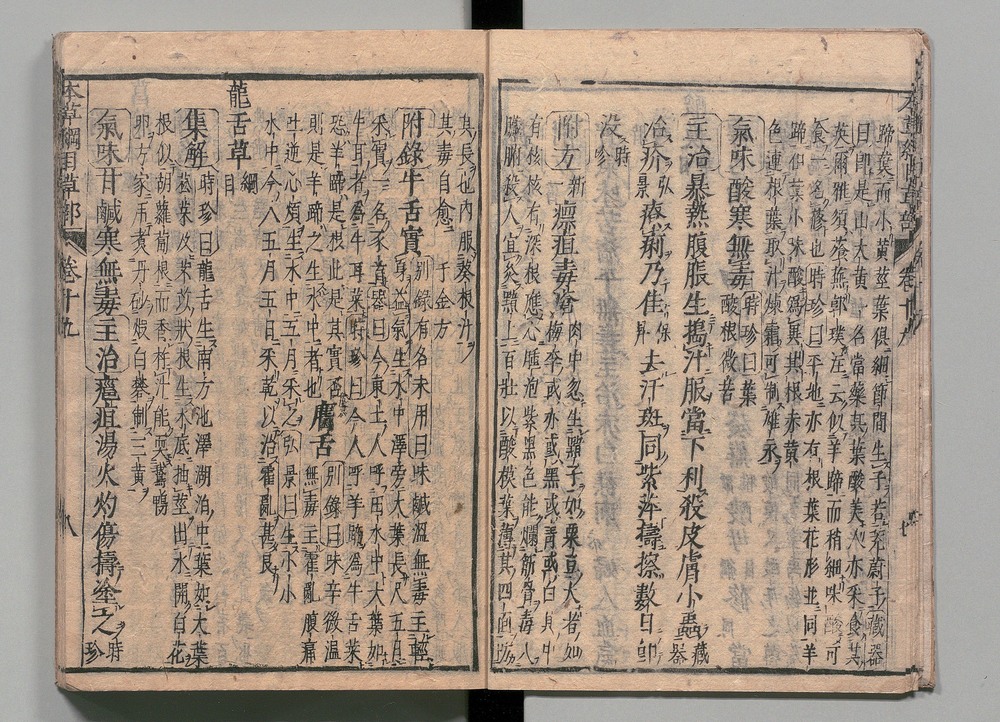 蹄葉而小黃莖葉俱細節間生子若茺蔚子藏器
曰即是山大黃一名當藥其葉酸美人亦采食其
英爾雅須薞蕪郭璞注云似羊蹄而稍細味酸可
食一名蓚也時珍曰平地亦有根葉花形並同羊
蹄但葉小味酸爲異其根赤黃
色連根葉取汁煉霜可制雄汞
氣味酸寒無毒時珍曰葉
酸根微苦
主治暴熱腹脹生搗汁服當下利殺皮膚小蟲藏
器
治疥弘
景療痢乃佳保
昇去汗斑同紫萍擣擦數日即
沒時
珍
附方新
一瘭疽毒瘡肉中忽生黯子如粟豆大者如
梅李或赤或黑或青或白其中
有核核有深根應心腫泡紫黑色能爛筋骨毒入
臟腑殺人宜灸黯上百壯以酸模葉薄其四面防
其長也內服葵根汁
其毒自愈 千金方
附錄牛舌實別錄有名未用曰味鹹溫無毒主輕
身益氣生水中澤旁大葉長尺五月
采實一名豕首器曰今東土人呼田水中大葉如
牛耳者爲牛耳菜時珍曰今人呼羊蹄爲牛舌菜
恐羊蹄是根此是其實否
則是羊蹄之生水中者也 䐚舌別錄曰味辛微溫
無毒主霍亂腹痛
吐逆心煩生水中五月采之弘景曰生小小
水中今人五月五日采乾以治霍亂甚良
龍舌草綱
目
集解時珍曰龍舌生南方池澤湖泊中葉如大葉
菘菜及芣苡狀根生水底抽莖出水開白花
根似胡蘿蔔根而香杵汁能耎鵞鴨
卵方家用煮丹砂煅白礬制三黃
氣味甘鹹寒無毒主治癰疽湯火灼傷擣塗之時
珍
本草綱目草部 卷十九 八
本草綱目草部 卷十九 七